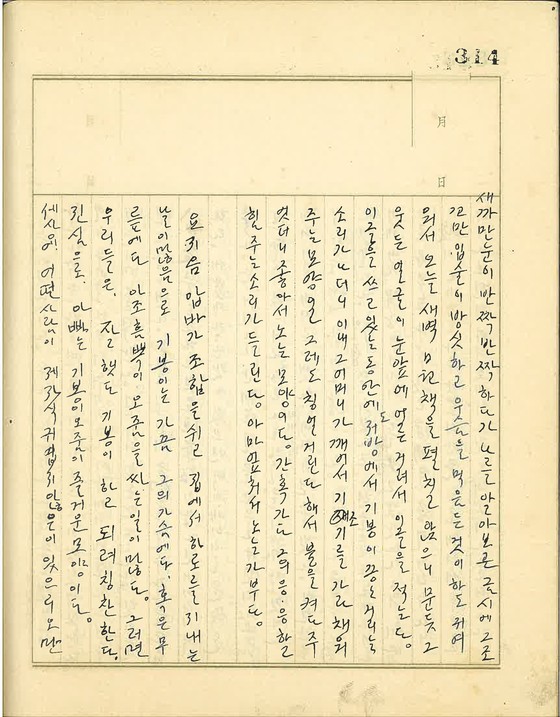 314
月
日
새까만 눈이 반짝반짝 하다가 나를 알아보곤 금시에 그 조
고만 입술이 방싯하고 웃음을 먹음든 것이 하도 귀여
워서 오늘 새벽 맘먹 책을 펼칠 않으니 문듯 그
웃는 얼굴이 눈앞에 어른거려서 이 글을 적는다.
이 글을 쓰고 있는 동안에도 저방에서 기봉이 끙끙거리는
소리가 나더니 이내 그 어머니가 깨어서 기저기를 가라 채워
주는 모양일 그레도 칭얼거린다 해서 불을 켜다 주
엇더니 좋아서 노는 모양이다. 간혹가다 그의 응.응 할
힘주는 소리가 들린다. 아마 엎처서 노는가 부다.
요즈음 압바가 조합을 쉬고 집에서 하로를 지내는
날이 많음으로 기봉이는 가끔 그의 가슴에다. 혹은 무
릎에다 아조 흠뻑이 오줌을 싸는 일이 많다. 그러면
우리들은, 잘 했다 기봉이 하고 되려 칭찬한다.
진실으로. 아빠는 기봉이 오줌이 즐거운 모양이다.
세상에. 어떤 사람이 제 자식 귀엽지 않은이 있으리오만